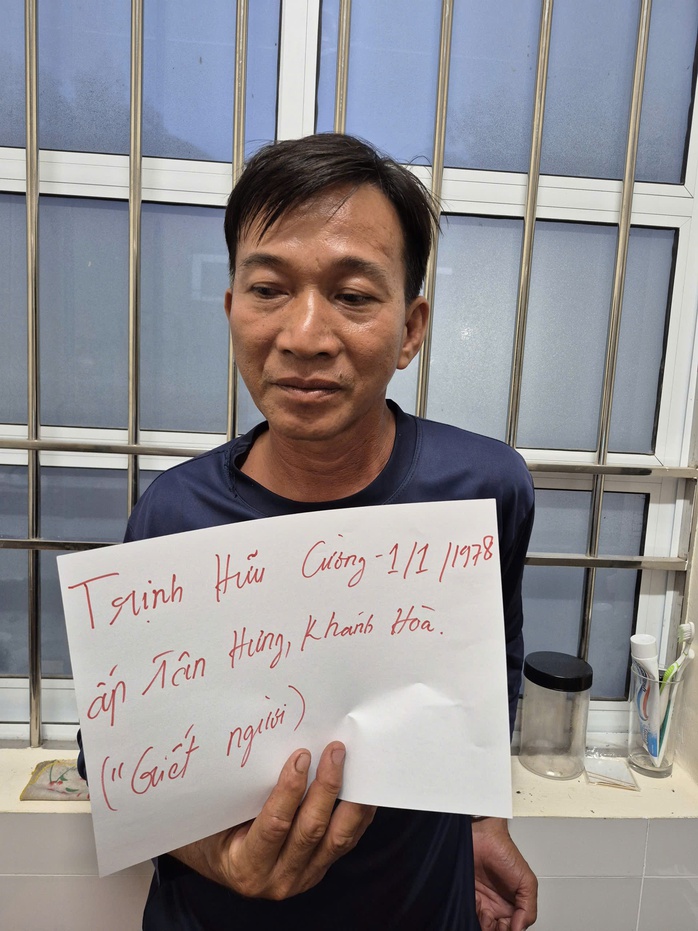 Trịnh Hữu Cường - 1/1/1978
ấp Tân Hưng, Khánh Hoà.
("Giết người)